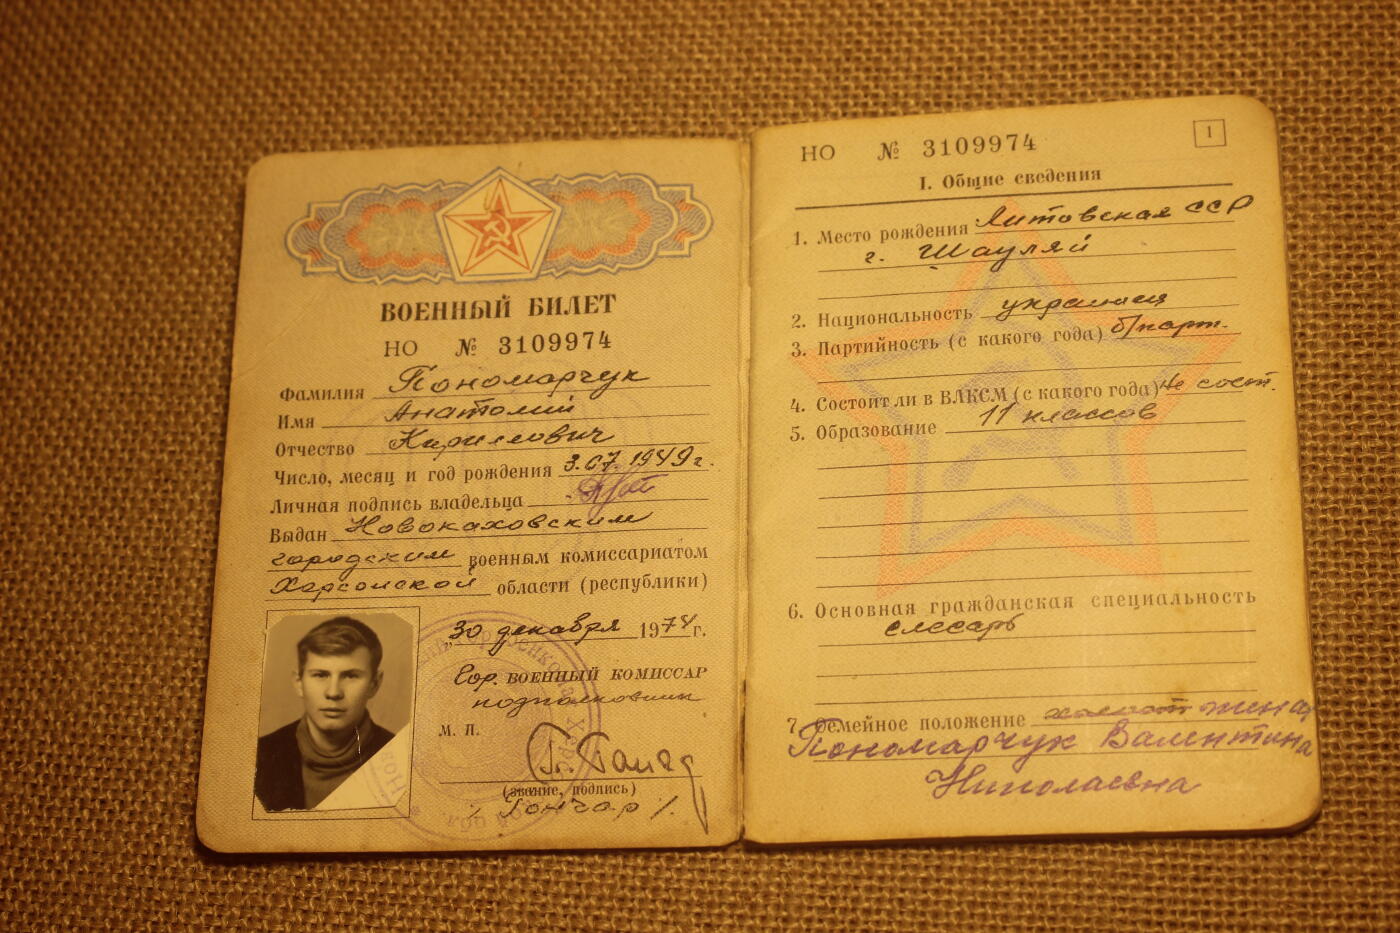 ВОЕННЫЙ БИЛЕТ
НО № 3109974
Фамилия Пономарчук
Имя Анатолий
Отчество Кириллович
Число, месяц и год рождения 3.07.1949г.
Личная подпись владельца
Выдан Новокаховским
городским военным комиссариатом
Херсонской области (республики)
"30 декабря 1974г.
Гор. ВОЕННЫЙ КОМИССАР
подполковник
М. П.
(звание, подпись)
/Гончар/.
НО № 3109974
1
I. Общие сведения
1. Место рождения Литовская ССР
г. Шауляй
2. Национальность украинец
3. Партийность (с какого года) б/парт.
4. Состоит ли в ВЛКСМ (с какого года) не сост.
5. Образование 11 классов
6. Основная гражданская специальность
слесарь
7. Семейное положение холост жена
Пономарчук Валентина
Николаевна